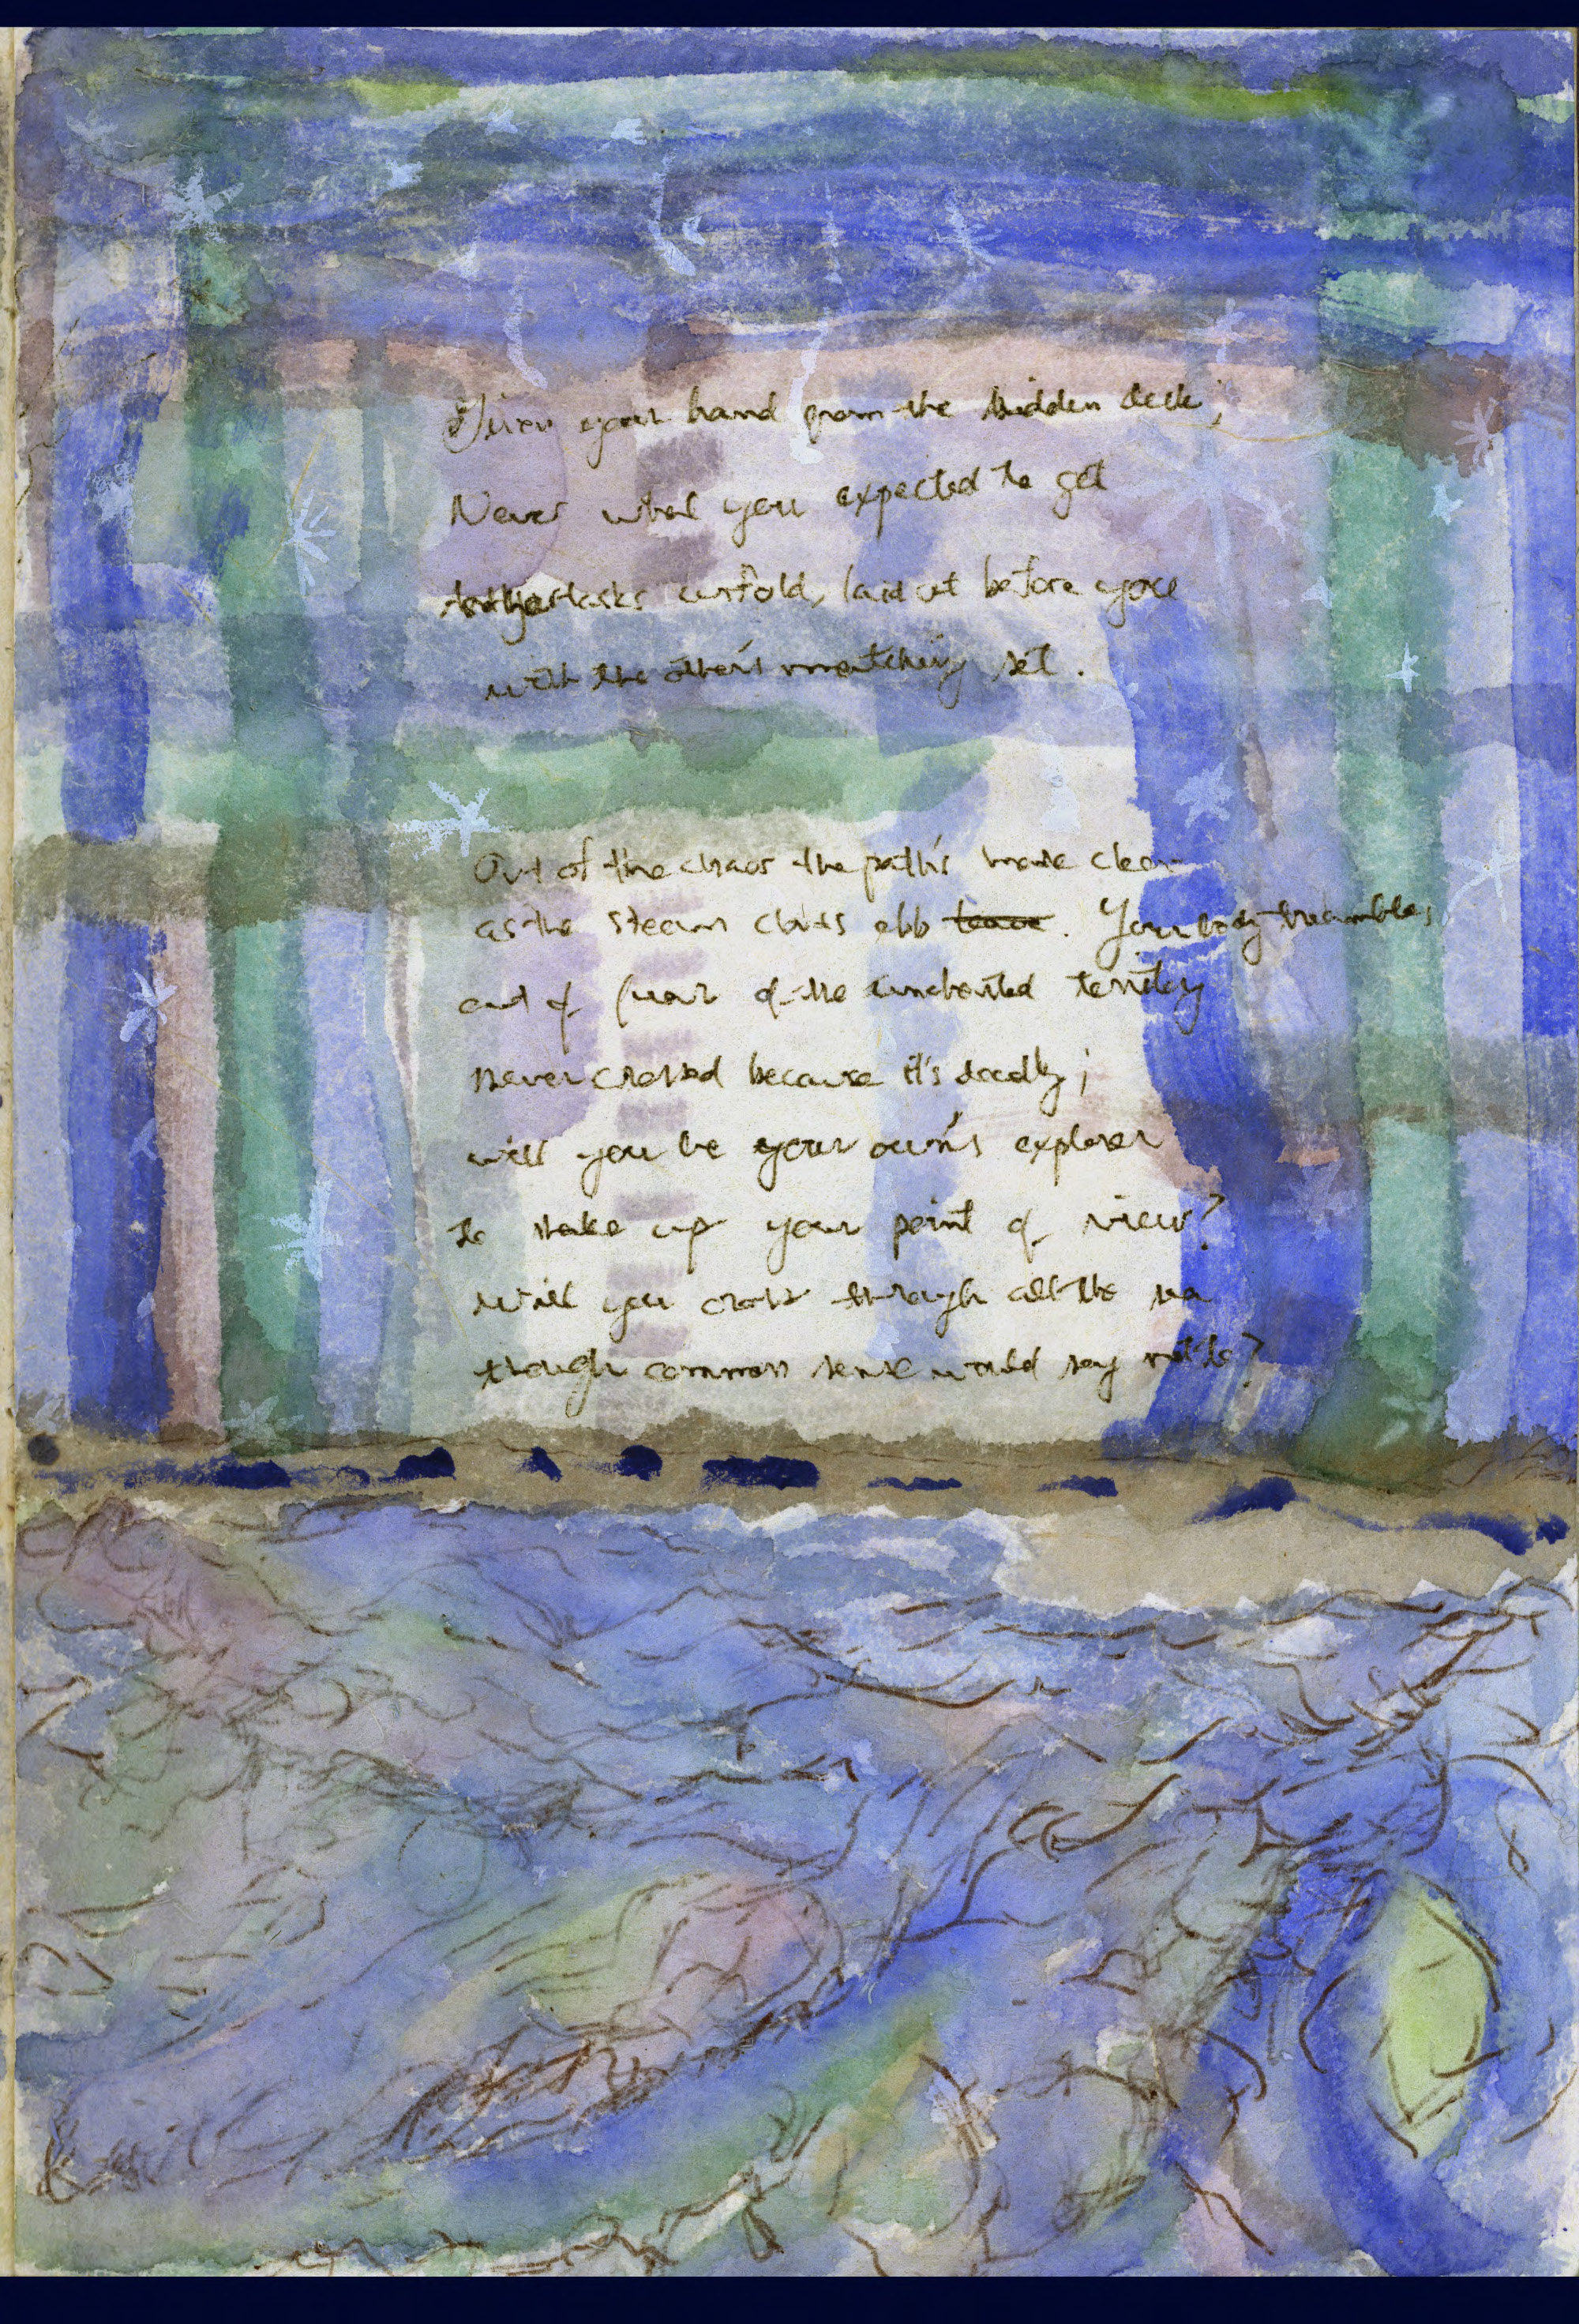 Given your hand from the hidden deck;
Never what you expected to get
tasks unfold, laid out before you
with the other's matching set.
Out of the chaos the path's made clear
as the steam clouds ebb leave. Your body treambles
out of fear of the uncharted territory
Never crossed because it's deadly;
will you be your own's explorer
to make up your point of view?
Will you cross through all the
though common sense would say not to?